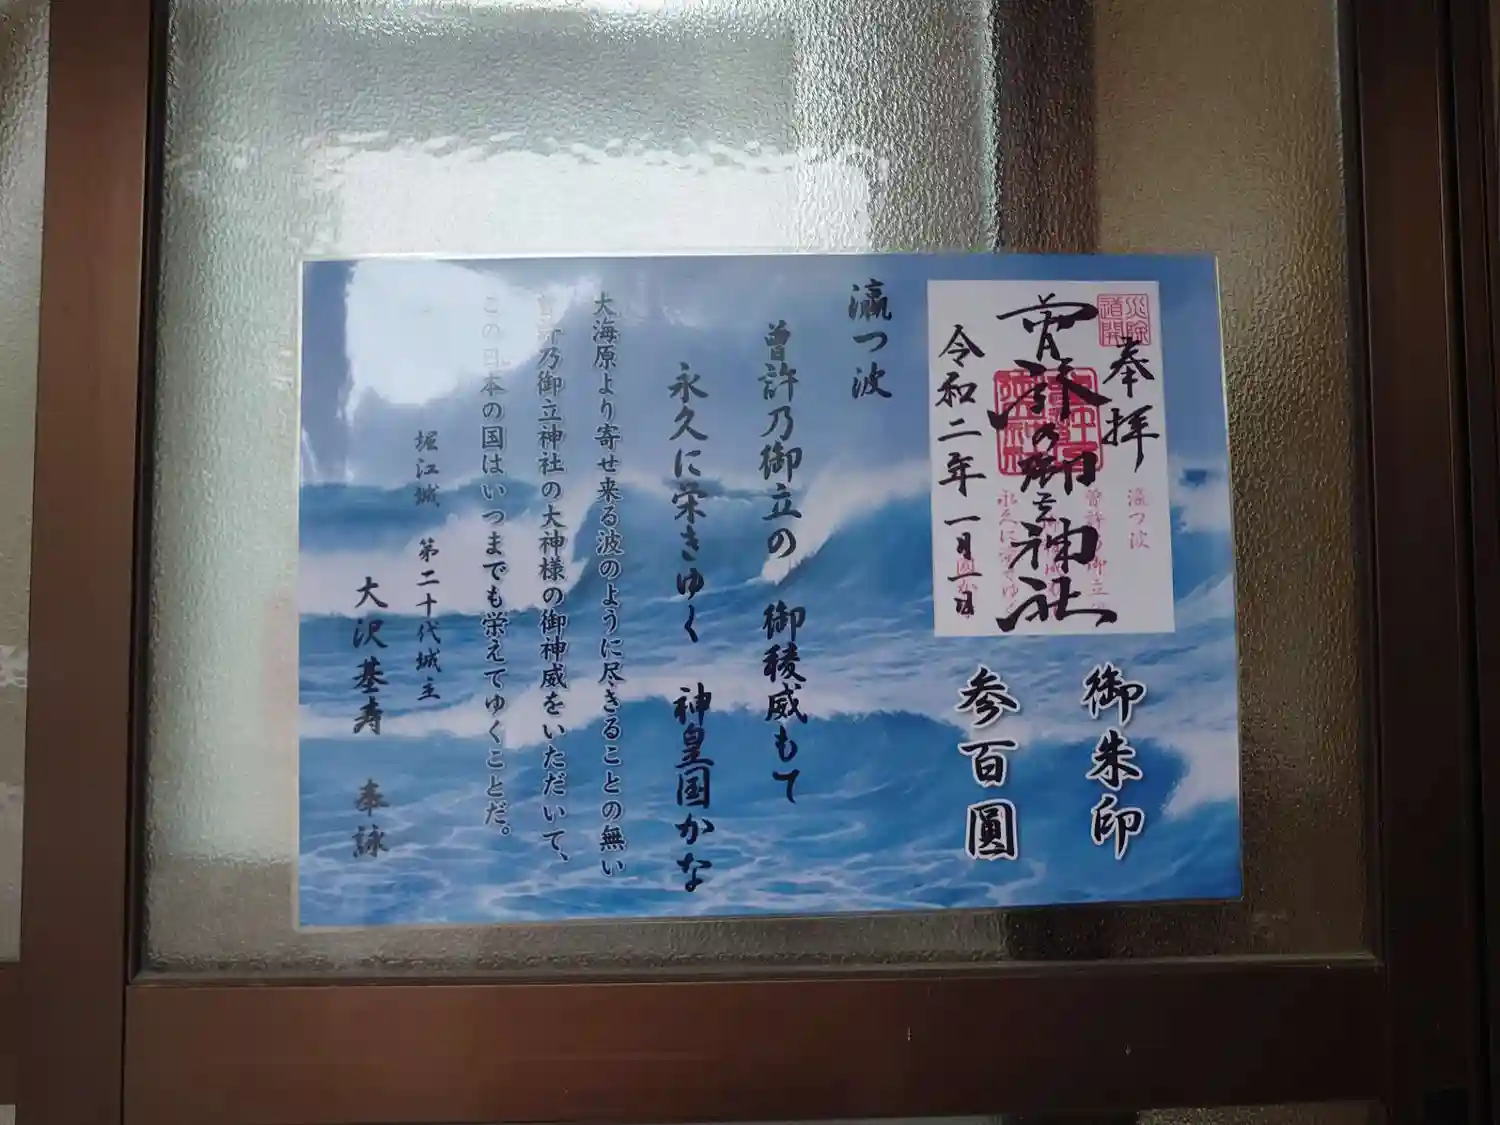 災除
道開
奉拝
曾許乃御立神社
瀛つ波
令和二年一月一日
御朱印
参百圓
瀛つ波
曾許乃御立の 御稜威もて
永久に栄きゆく 神皇国かな
大海原より寄せ来る波のように尽きることの無い
曾許乃御立神社の大神様の御神威をいただいて、
この日本の国はいつまでも栄えてゆくことだ。
堀江城 第二十代城主
大沢基寿 奉詠